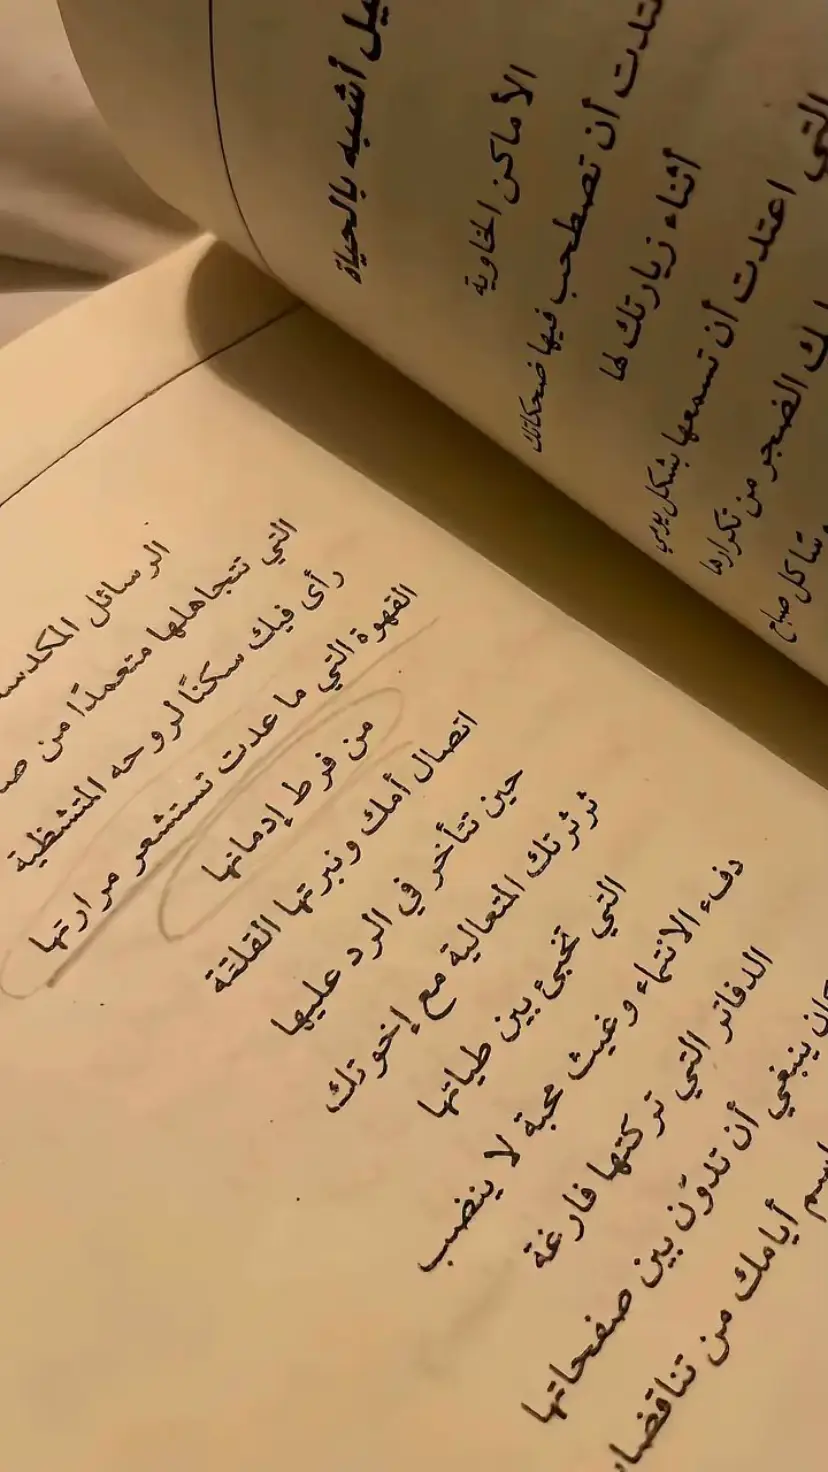 أشبه بالحياة
الأماكن الخاوية
أن تصطحب فيها ضحكاتك
أثناء زيارتك لها
التي اعتدت أن تسمعها بشكل يومي
الضجر من تكرارها
كل صباح
الرسائل المكدسة
التي تتجاهلها متعمدًا من
رأى فيك سكنًا لروحه المتشظية
القهوة التي ما عدت تستشعر مرارتها
من فرط إدمانها
اتصال أمك ونبرتها القلقة
حين تتأخر في الرد عليها
ثرثرتك المتعالية مع إخوتك
التي تخبئ بين طياتها
دفء الانتماء وغيث محبة لا ينضب
الدفاتر التي تركتها فارغة
ينبغي أن تدوّن بين صفحاتها
أيامك من